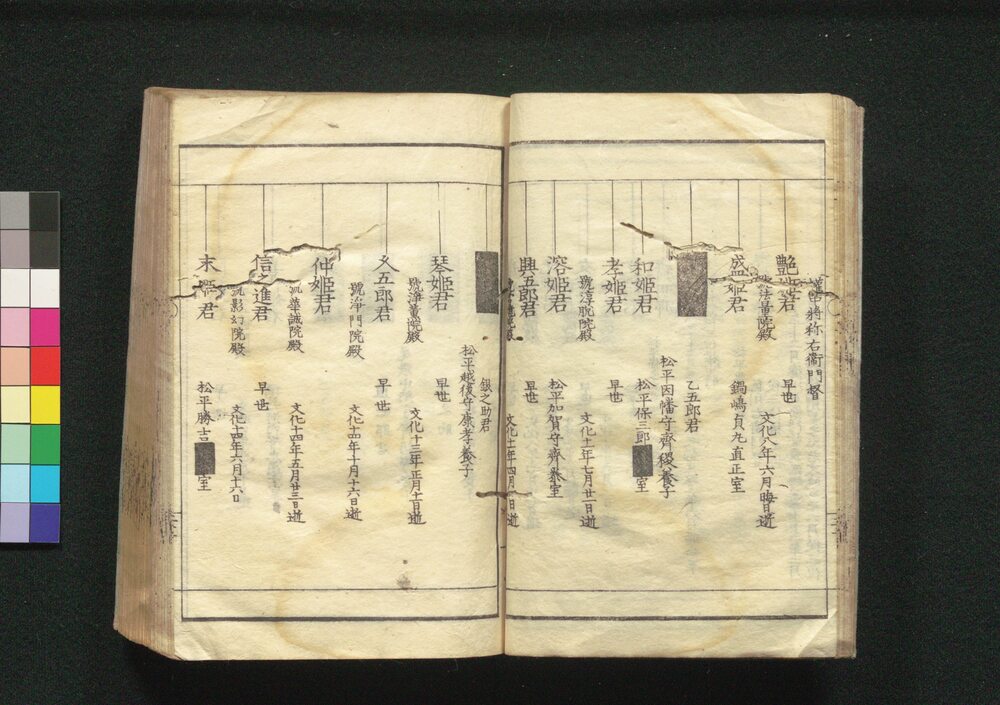 將称右衞門督
艶姫君
法量院殿
早世
文化八年六月晦日逝
盛姫君
鍋嶋貞丸直正室
乙五郎君
松平因幡守齊稷養子
和姫君
松平保三郎
室
孝姫君
早世
號淳脱院殿
文化十一年七月廿一日逝
溶姫君
松平加賀守齊泰室
興五郎君
早世
文化十年四月日逝
銀之助君
松平越後守康孝養子
琴姫君
早世
號淨薫院殿
文化十三年正月十日逝
久五郎君
早世
號淨門院殿
文化十四年十月十六日逝
仲姫君
華誠院殿
文化十四年五月廿三日逝
信之進君
早世
影幻院殿
文化十四年六月十六日
末姫君
松平勝吉
室